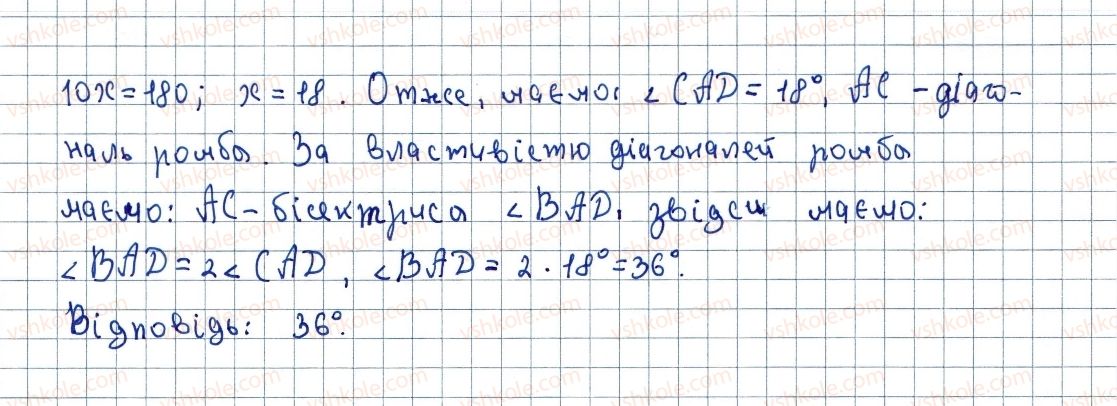 10x = 180; x = 18. Отже, маємо: ∠CAD = 18°, AC - діаго-
наль ромба. За властивістю діагоналей ромба
маємо: AC - бісектриса ∠BAD, звідси маємо:
∠BAD = 2∠CAD, ∠BAD = 2 · 18° = 36°.
Відповідь: 36°.